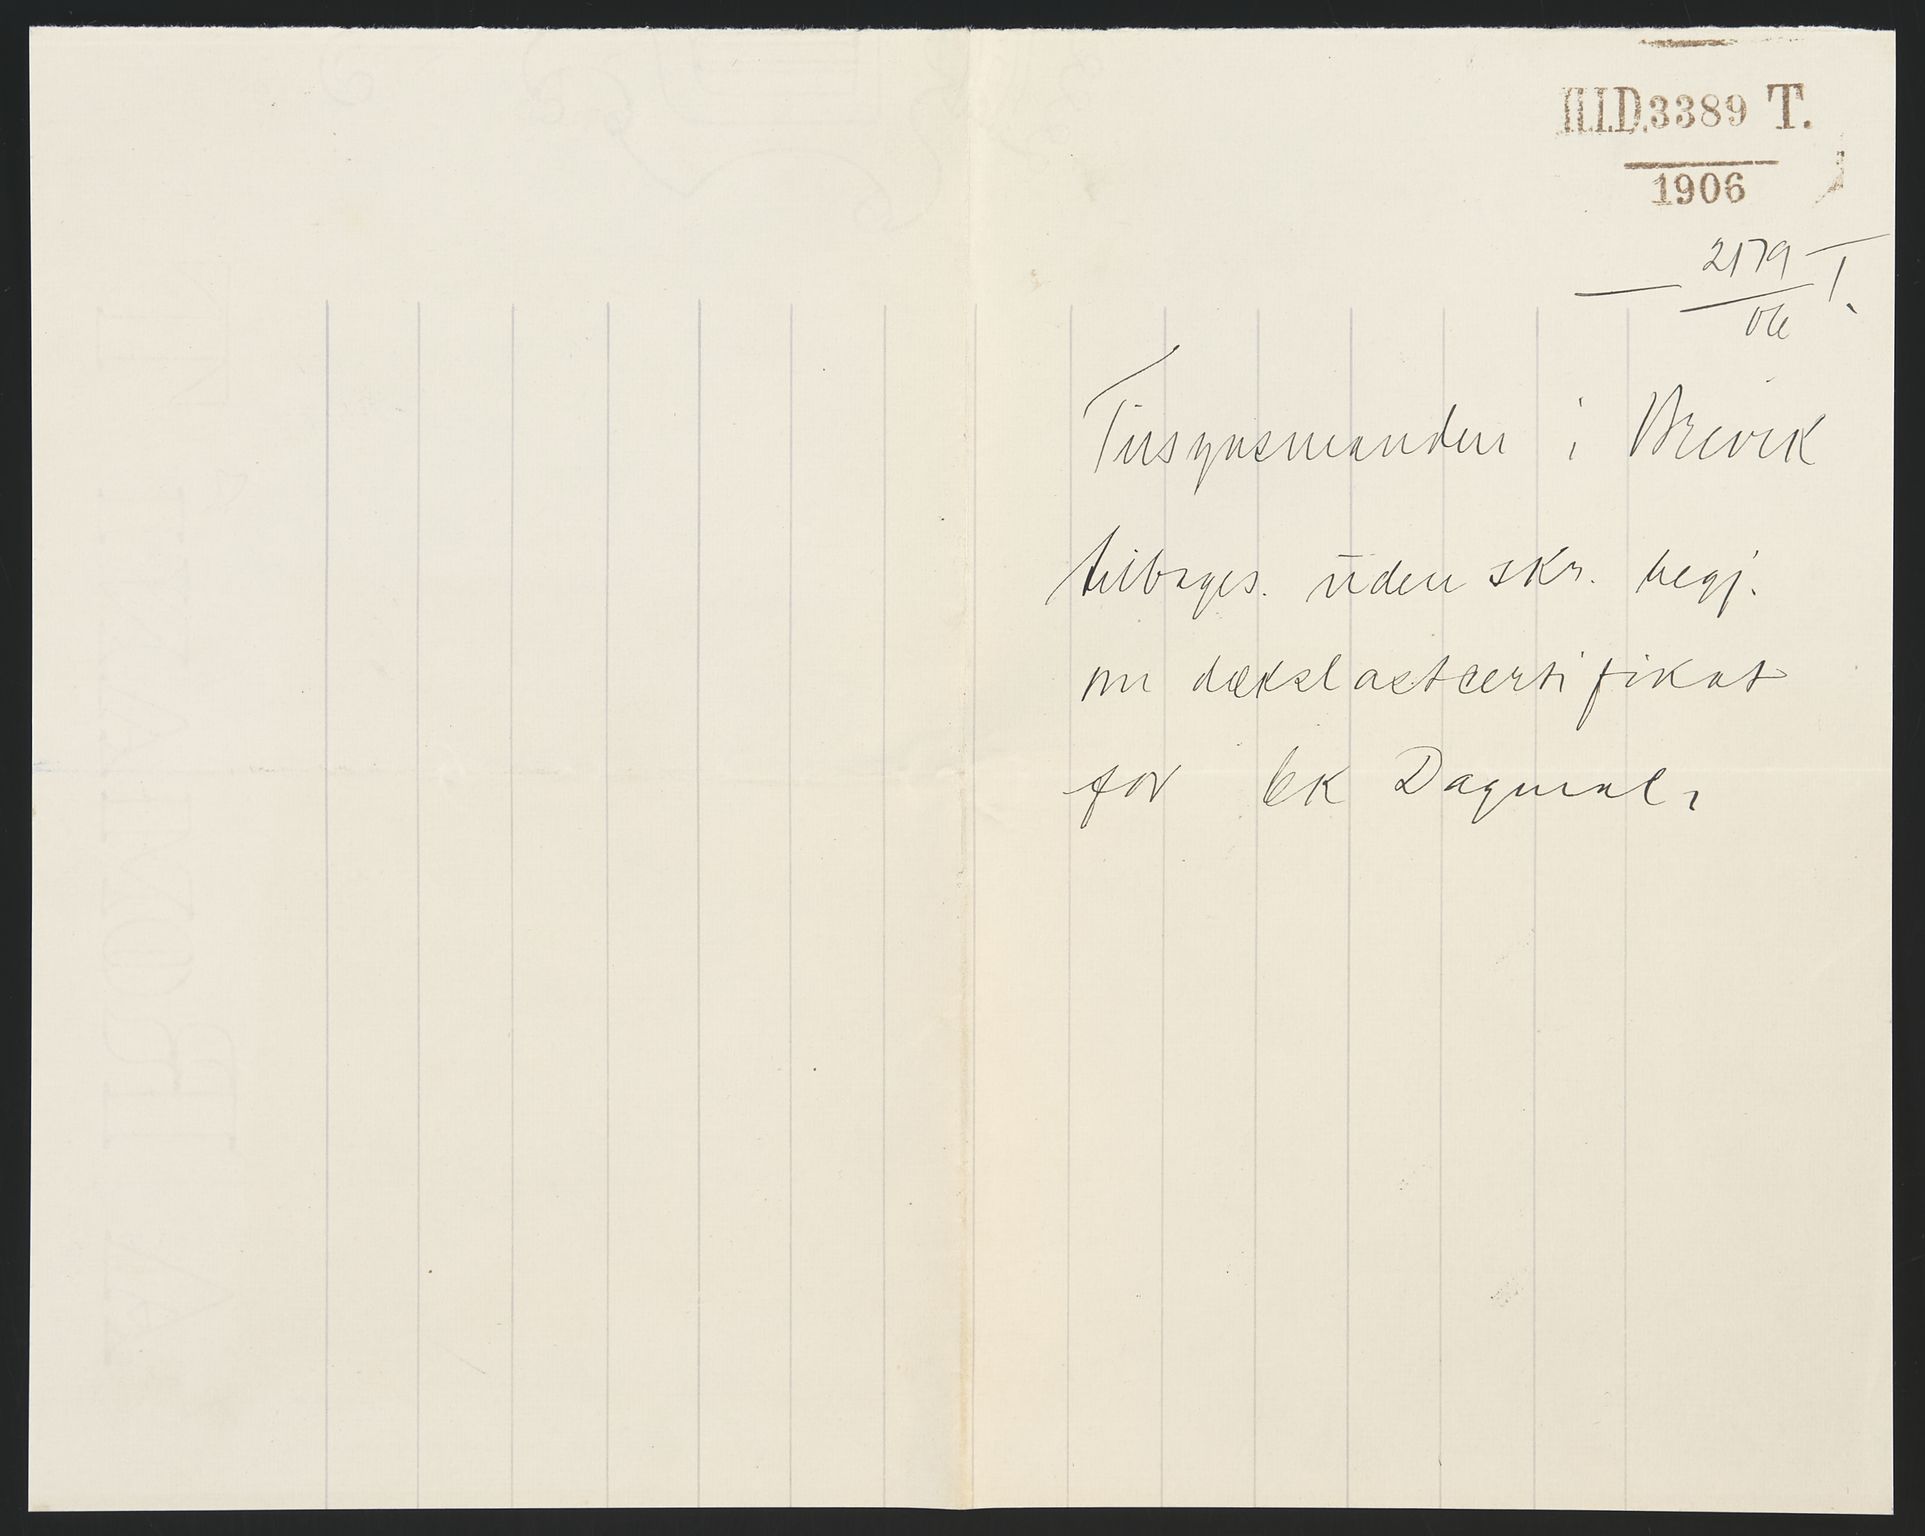 III.I.D.3389 T.
1906
2179 T.
06
Tilsynsmanden i Brevik
tilbages. uden skr. begj.
om dækslastcertifikat
for bk Dagmar.